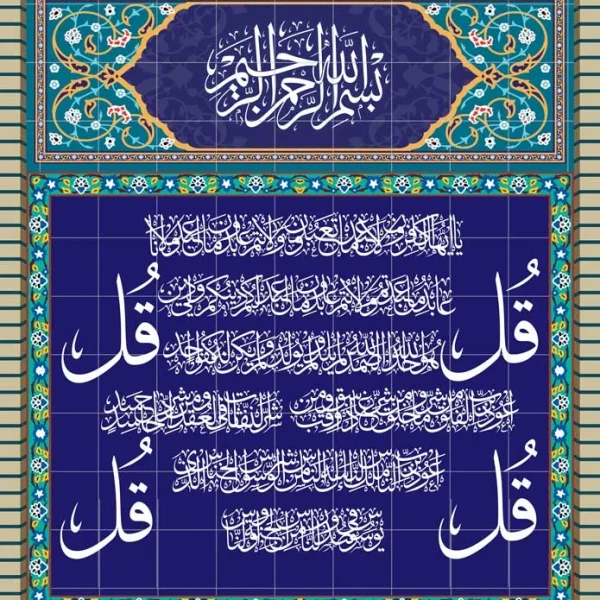 بسم الله الرحمن الرحيم
يا أيها الكافرون لا أعبد ما تعبدون ولا أنتم عابدون ما أعبد ولا أنا
عابد ما عبدتم ولا أنتم عابدون ما أعبد لكم دينكم ولي دين
قُل قُل
هو الله أحد الله الصمد لم يلد ولم يولد ولم يكن له كفوا أحد
أعوذ برب الفلق من شر ما خلق ومن شر غاسق إذا وقب ومن شر النفاثات في العقد ومن شر حاسد إذا حسد
أعوذ برب الناس ملك الناس إله الناس من شر الوسواس الخناس الذي
قُل قُل
يوسوس في صدور الناس من الجنة والناس